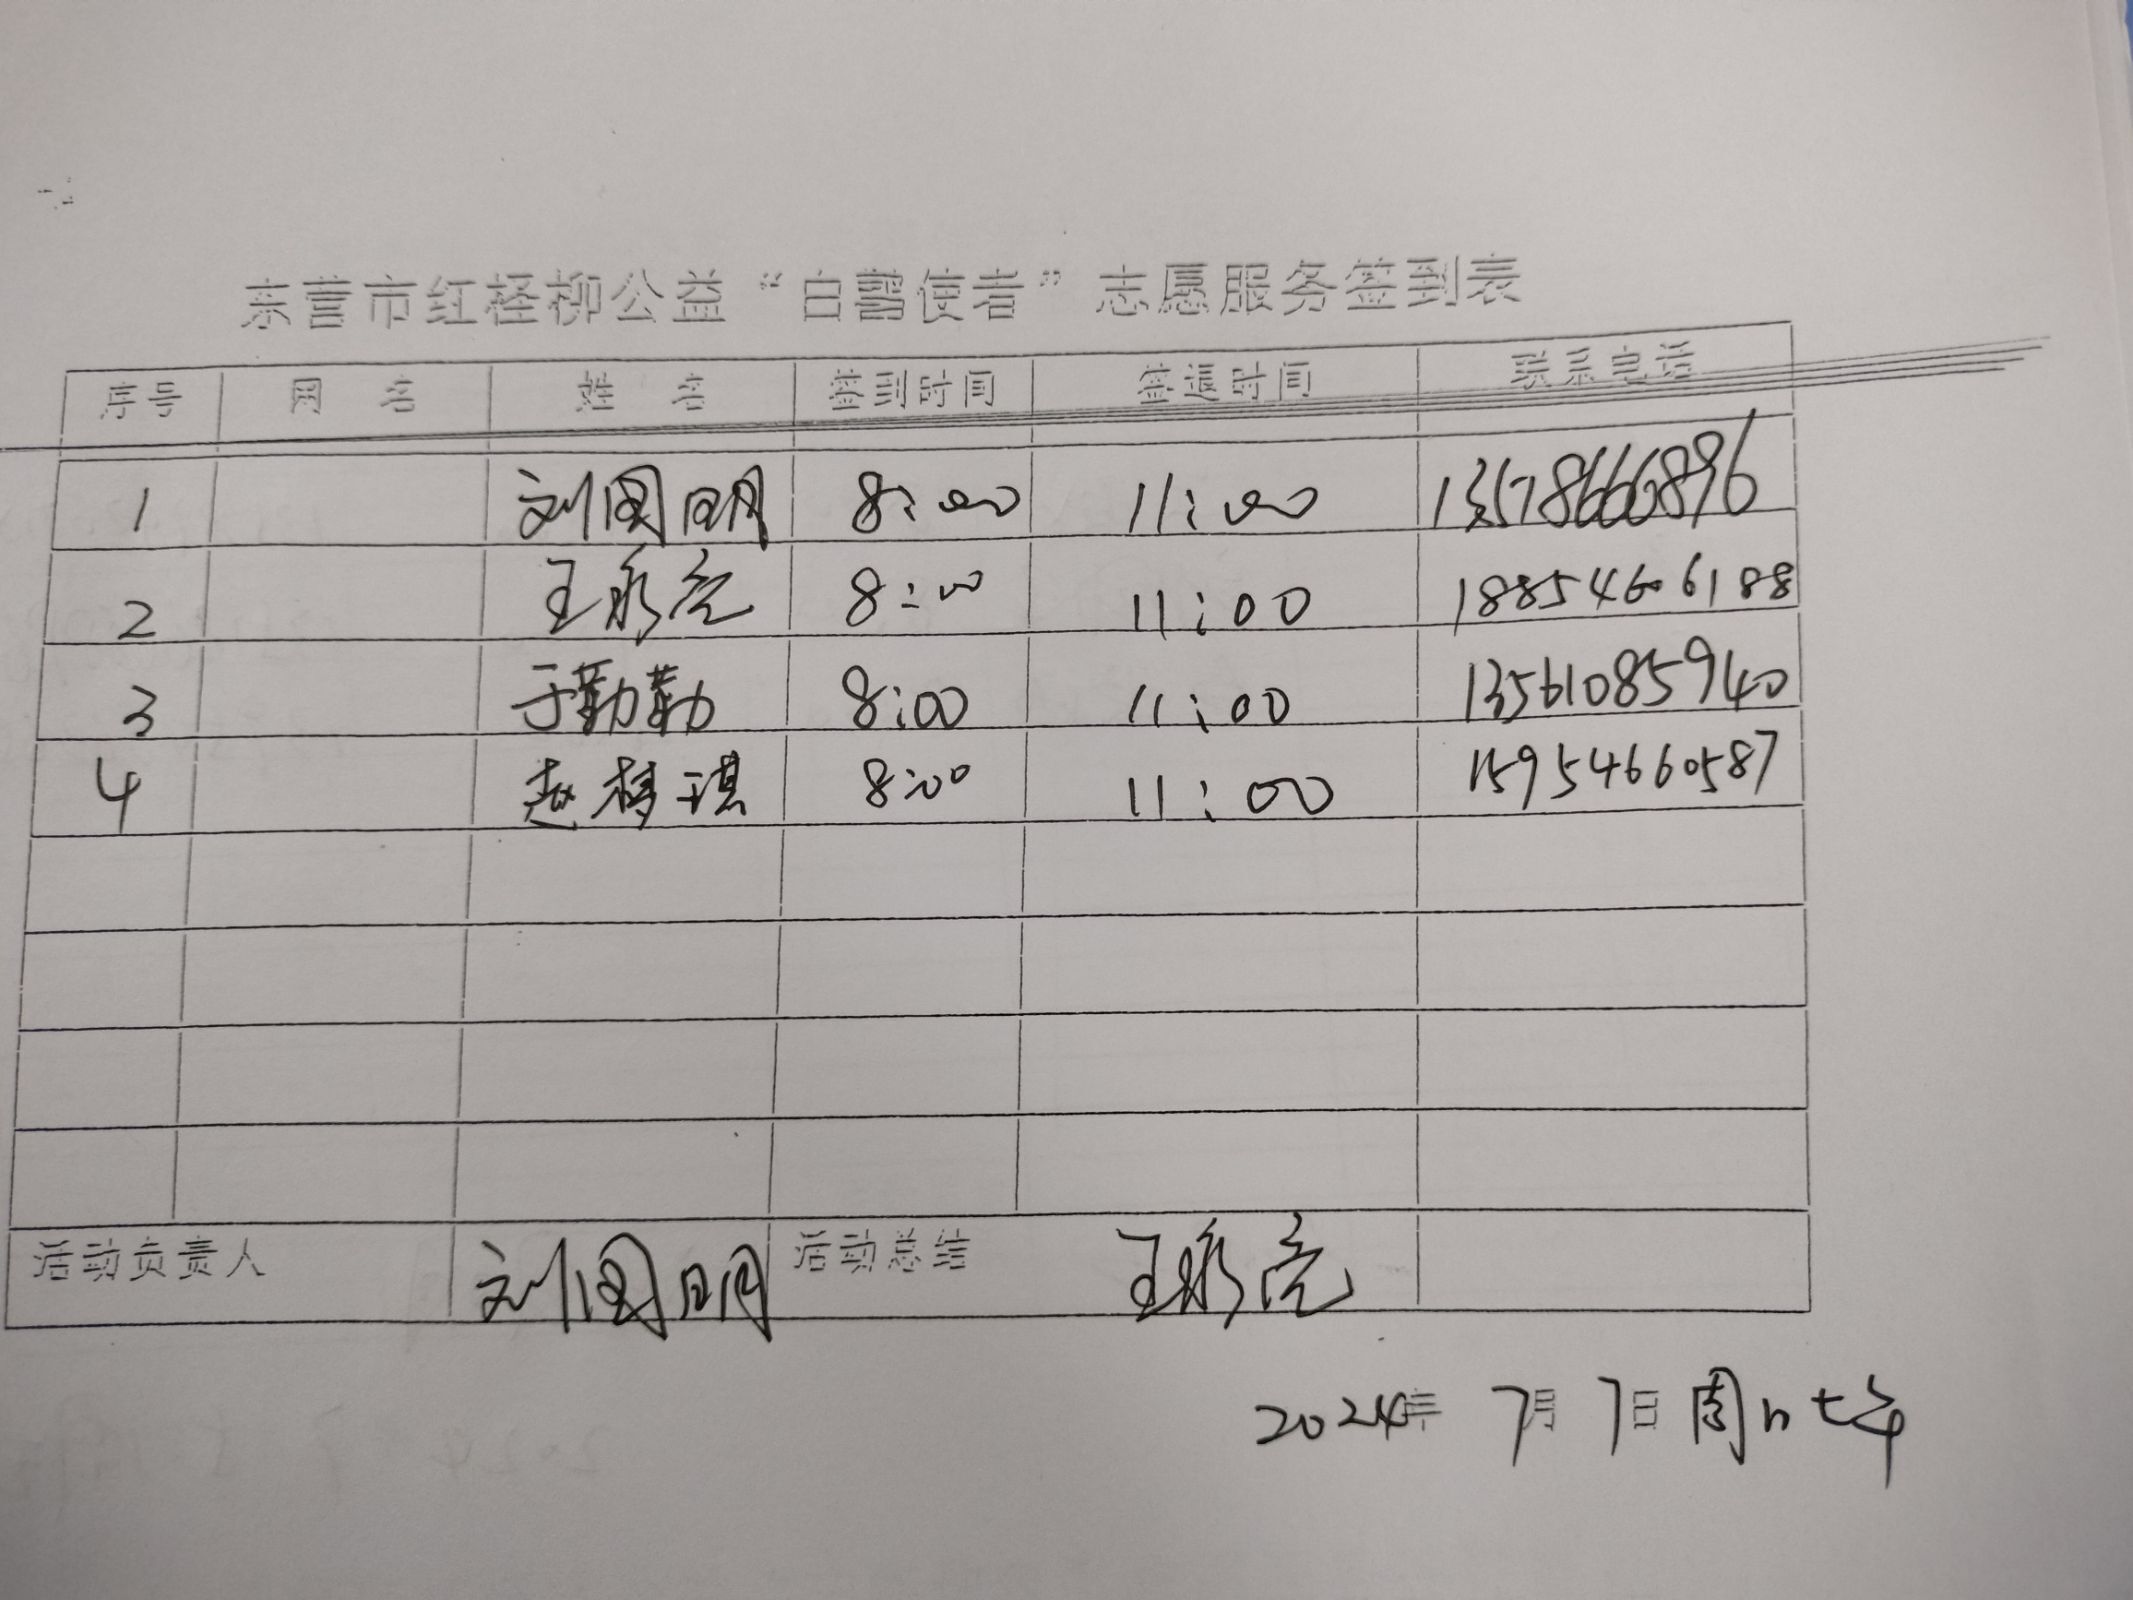 东营市红柽柳公益“白鹭使者”志愿服务签到表
序号 网名 姓名 签到时间 签退时间 联系电话
1 刘国明 8:00 11:00 13578666896
2 王永亮 8:00 11:00 18854606188
3 于勤勤 8:00 11:00 13561085940
4 赵梦琪 8:00 11:00 15954660587
活动负责人 刘国明 活动总结 王永亮
2024年 7月 7日 周日 上午